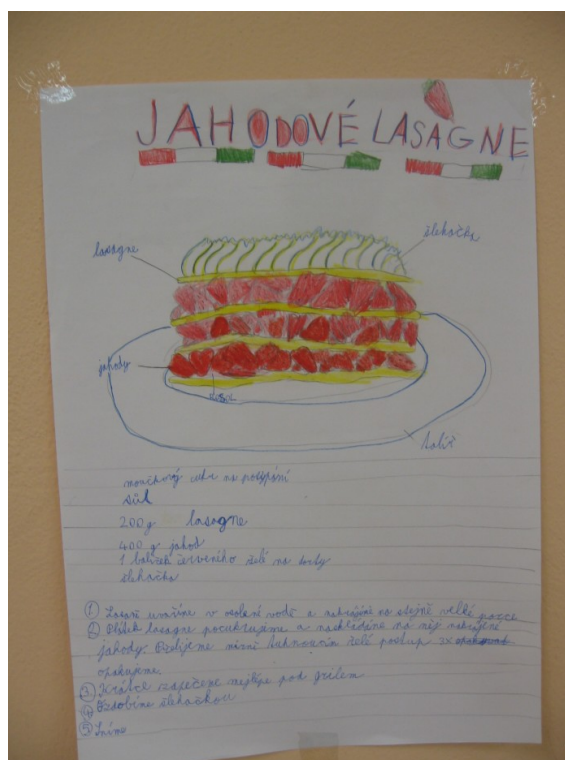 JAHODOVÉ LASAGNE
lasagne
šlehačka
jahody
talíř
moučkový cukr na posypání
sůl
200g lasagne
400 g jahod
1 balíček červeného želé na dorty
šlehačka
① Lasaně uvaříme v osolené vodě a nakrájíme na stejně velké porce
② Plátek lasagne pocukrujeme a naskládáme na něj nakrájené
jahody. Přelijeme mírně tuhnoucím želé postup 3x
opakujeme.
③ Krátce zapečeme nejlépe pod grilem
④ Ozdobíme šlehačkou
⑤ Sníme